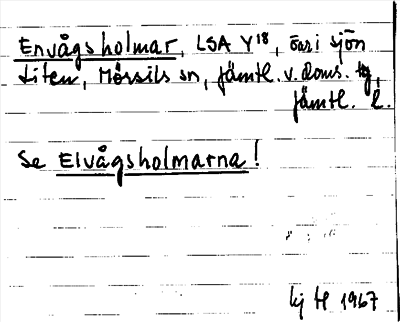 Envågsholmar, LSA Y¹⁸, öar i sjön
Liten, Mörsils sn, Jämtl. v. doms. tg,
Jämtl. l.
Se Elvågsholmarna!
1967